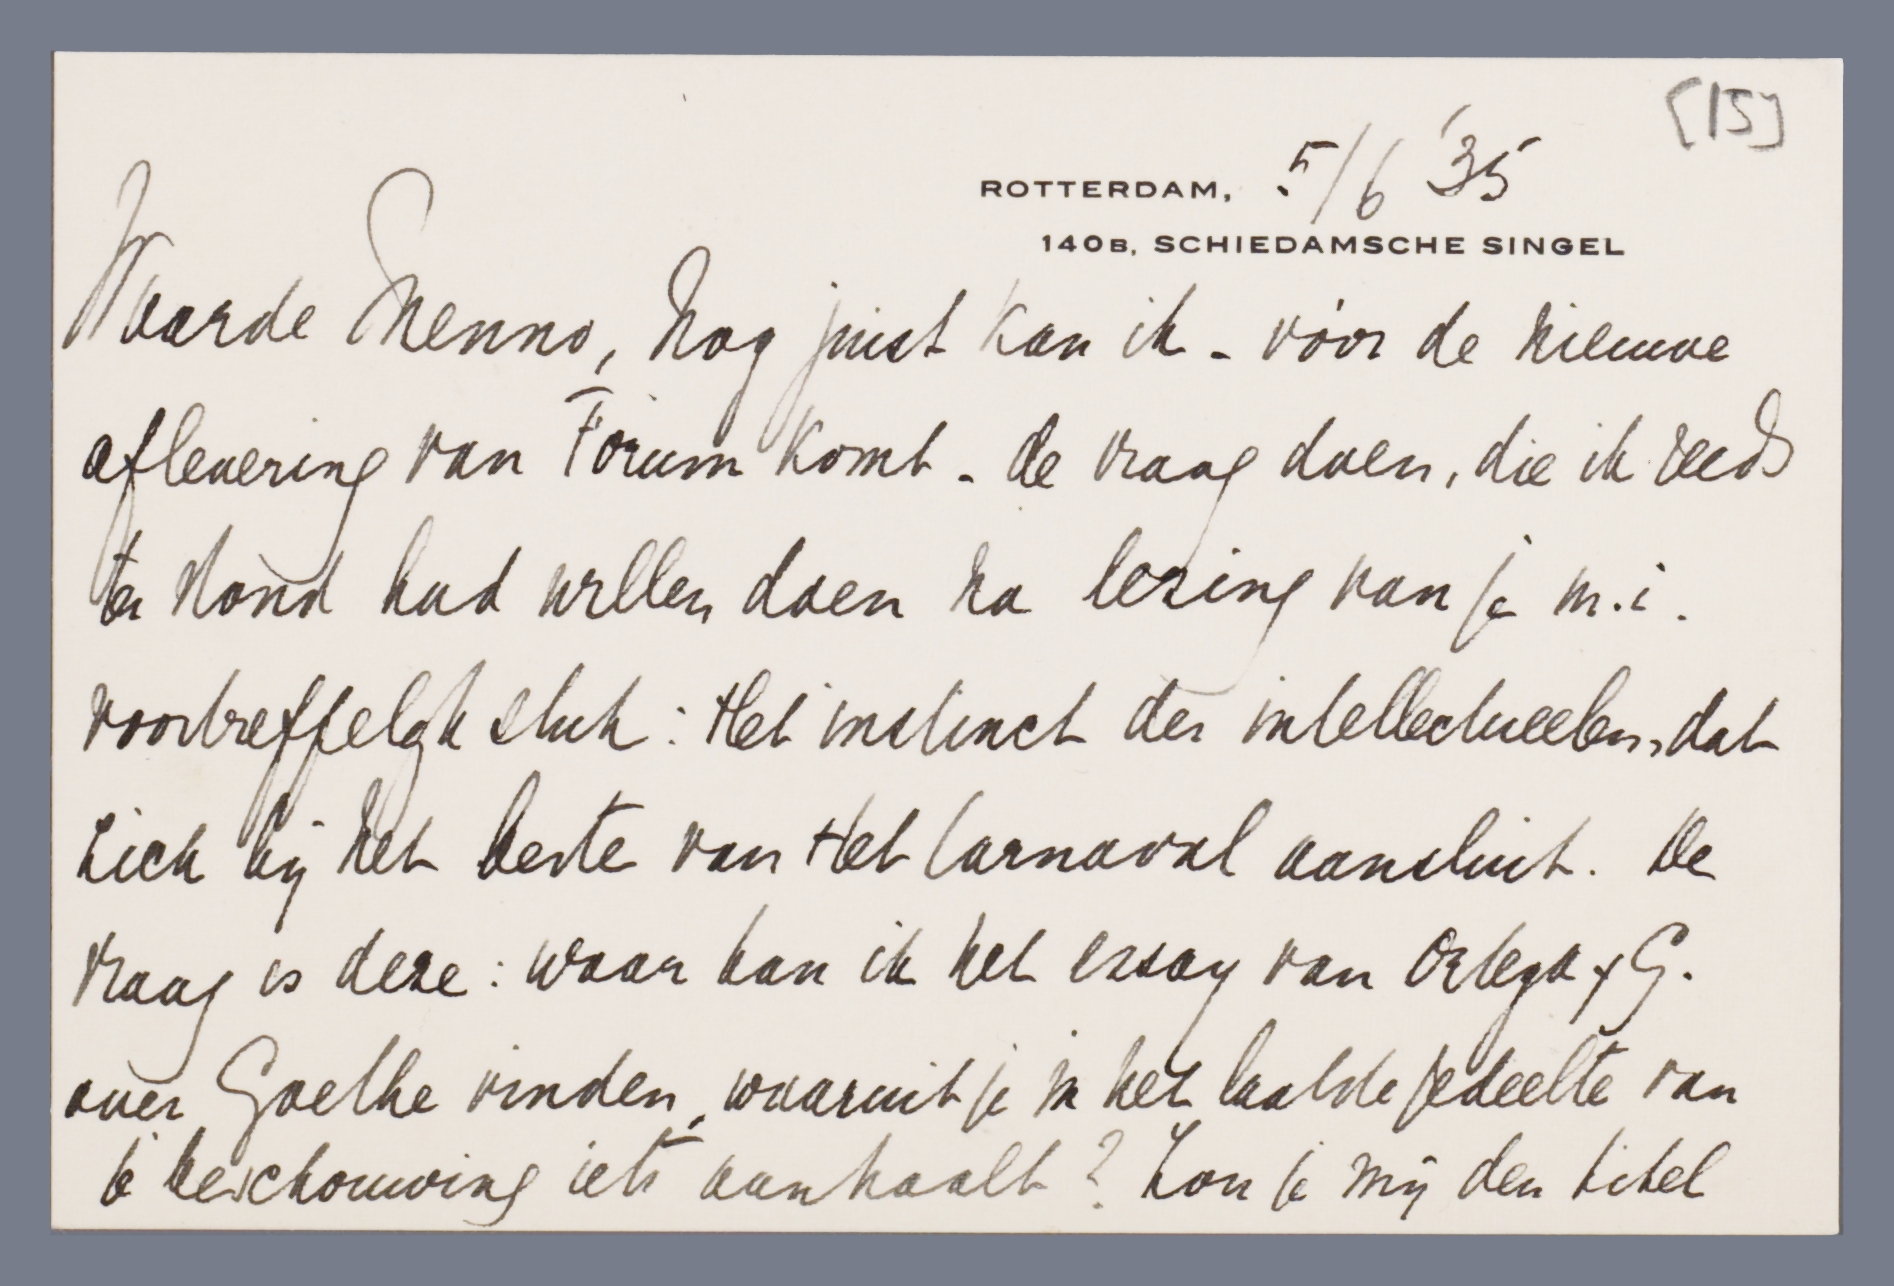 [15]
ROTTERDAM, 5/6 '35
140B, SCHIEDAMSCHE SINGEL
Waarde Menno, Nog juist kan ik - vóór de nieuwe
aflevering van Forum komt - de vraag doen, die ik reeds
ter stond had willen doen na lezing van je m.i.
voortreffelijk stuk: Het instinct der intellectueelen, dat
zich bij het beste van Het Carnaval aansluit. De
vraag is deze: waar kan ik het essay van Ortega y G.
over Goethe vinden, waaruit je in het laatste gedeelte van
je beschouwing iets aanhaalt? Zou je mij den titel